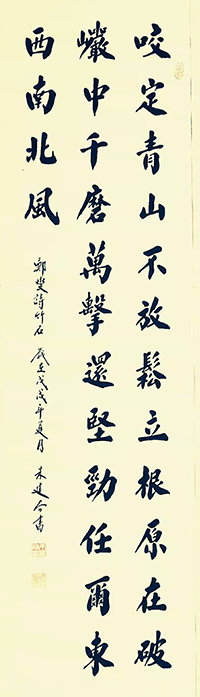 咬定青山不放鬆立根原在破
巖中千磨萬擊還堅勁任爾東
西南北風
鄭燮詩竹石 歲在戊戌年夏月 朱建合書